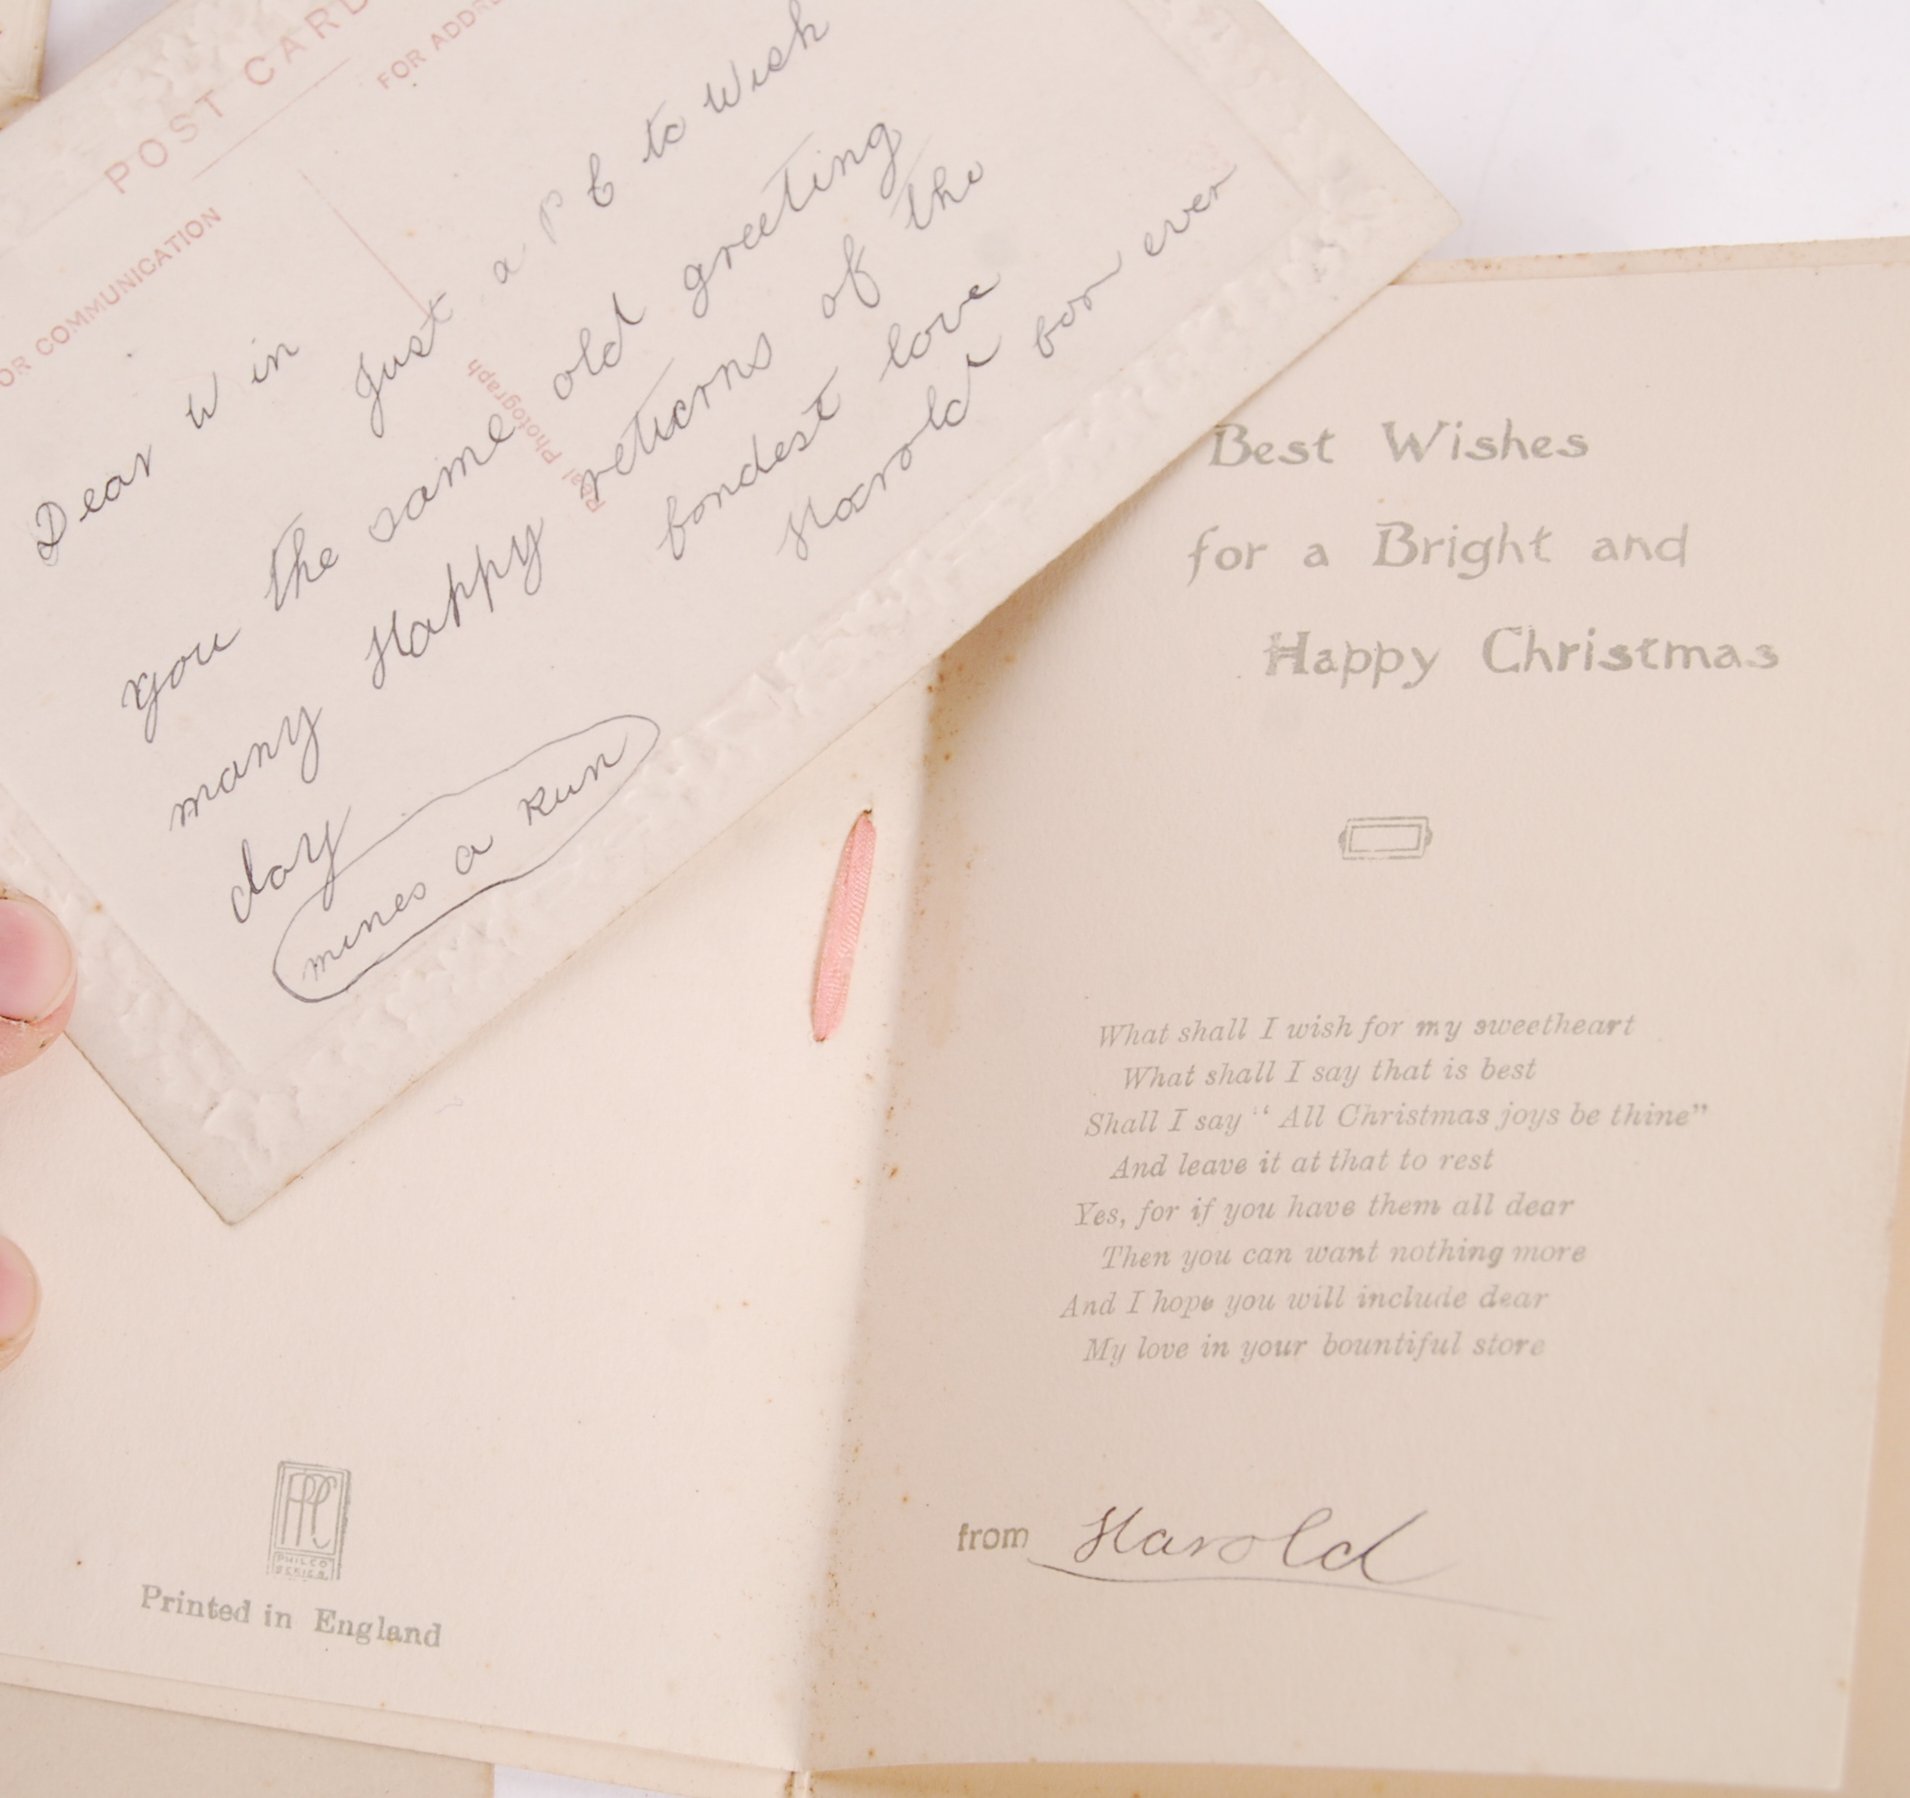 POST CARD
FOR ADDRE
OR COMMUNICATION
Real Photograph
Dear Win
Just a P C to Wish
you the same old greeting
many Happy returns of the
day fondest love
Harold for ever
mines a Rum
Best Wishes
for a Bright and
Happy Christmas
What shall I wish for my sweetheart
What shall I say that is best
Shall I say "All Christmas joys be thine"
And leave it at that to rest
Yes, for if you have them all dear
Then you can want nothing more
And I hope you will include dear
My love in your bountiful store
from Harold
PPC
PHILCO
SERIES
Printed in England